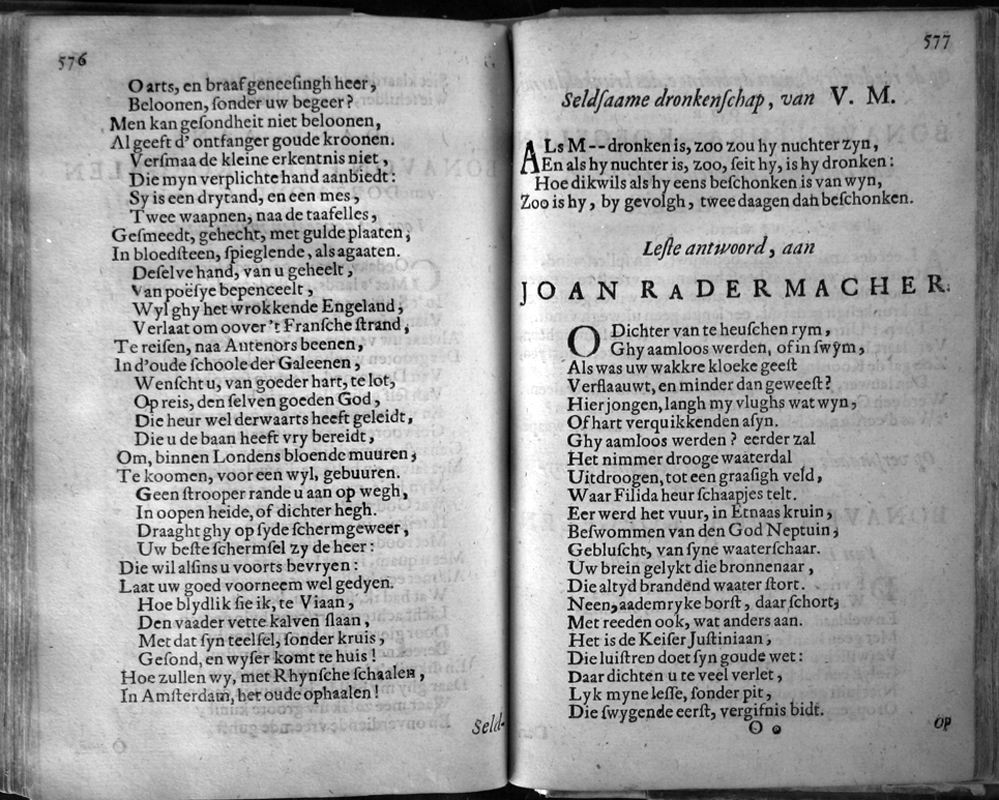 576
O arts, en braaf geneeſingh heer,
Beloonen, ſonder uw begeer?
Men kan geſondheit niet beloonen,
Al geeft d' ontfanger goude kroonen.
Verſmaa de kleine erkentnis niet,
Die myn verplichte hand aanbiedt:
Sy is een drytand, en een mes,
Twee waapnen, naa de taafelles,
Geſmeedt, gehecht, met gulde plaaten;
In bloedſteen, ſpieglende, als agaaten.
Deſelve hand, van u geheelt,
Van poëſye bepenceelt,
Wyl ghy het wrokkende Engeland;
Verlaat om oover't Franſche ſtrand;
Te reiſen, naa Antenors beenen,
In d'oude ſchoole der Galeenen,
Wenſcht u, van goeder hart, te lot,
Op reis, den ſelven goeden God,
Die heur wel derwaarts heeft geleidt,
Die u de baan heeft vry bereidt,
Om, binnen Londens bloende muuren;
Te koomen, voor een wyl, gebuuren.
Geen ſtrooper rande u aan op wegh,
In oopen heide, of dichter hegh.
Draaght ghy op ſyde ſchermgeweer,
Uw beſte ſchermſel zy de heer:
Die wil alſins u voorts bevryen:
Laat uw goed voorneem wel gedyen.
Hoe blydlik ſie ik, te Viaan,
Den vaader vette kalven ſlaan,
Met dat ſyn teelſel, ſonder kruis,
Geſond, en wyſer komt te huis!
Hoe zullen wy, met Rhynſche ſchaalen,
In Amſterdam, het oude ophaalen!
Seld-
577
Seldſaame dronkenſchap, van V. M.
ALs M-- dronken is, zoo zou hy nuchter zyn,
En als hy nuchter is, zoo, ſeit hy, is hy dronken:
Hoe dikwils als hy eens beſchonken is van wyn,
Zoo is hy, by gevolgh, twee daagen dan beſchonken.
Leſte antwoord, aan
JOAN RADERMACHER.
O Dichter van te heuſchen rym,
Ghy aamloos werden, of in ſwym,
Als was uw wakkre kloeke geeſt
Verflaauwt, en minder dan geweeſt?
Hier jongen, langh my vlughs wat wyn,
Of hart verquikkenden aſyn.
Ghy aamloos werden? eerder zal
Het nimmer drooge waaterdal
Uitdroogen, tot een graaſigh veld,
Waar Filida heur ſchaapjes telt.
Eer werd het vuur, in Etnaas kruin,
Beſwommen van den God Neptuin;
Gebluſcht, van ſyne waaterſchaar.
Uw brein gelykt die bronnenaar,
Die altyd brandend waater ſtort.
Neen, aademryke borſt, daar ſchort;
Met reeden ook, wat anders aan.
Het is de Keiſer Juſtiniaan,
Die luiſtren doet ſyn goude wet:
Daar dichten u te veel verlet,
Lyk myne leſſe, ſonder pit,
Die ſwygende eerſt, vergifnis bidt.
O o
Op